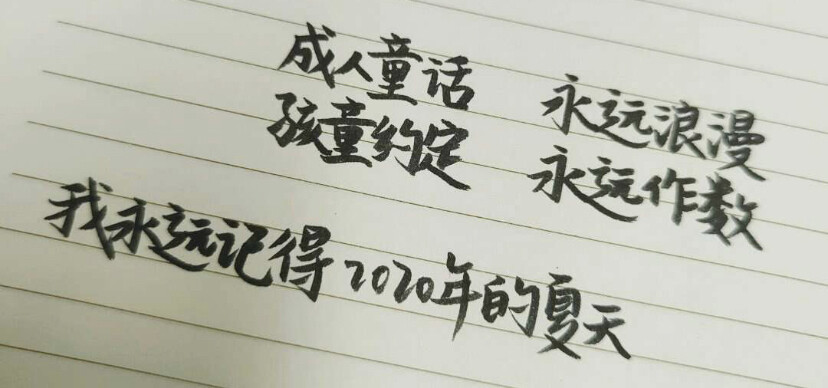 成人童话 永远浪漫
孩童约定 永远作数
我永远记得2020年的夏天